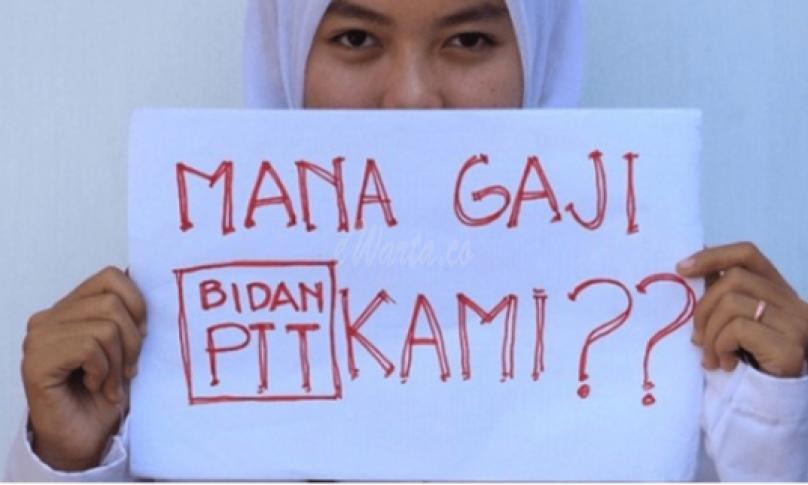 MANA GAJI
BIDAN
PTT
KAMI??
eWarta.co